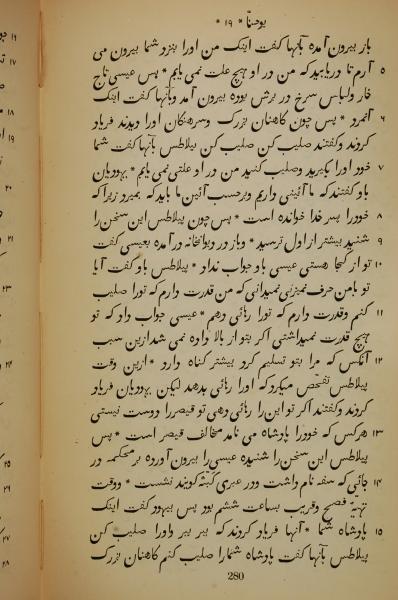 يوحنّا * ۱۹ *
باز بيرون آمده بآنها كفت اينك من اورا بنزد شما بيرون مى
۵ آرم تا دريابيد كه من در او هيچ علت نمى يابم * پس عيسى تاج
خار ولباس سرخ در برش بوده بيرون آمد وبآنها كفت اينك
۶ آنمرد * پس چون كاهنان بزرك وسرهنكان اورا ديدند فرياد
كردند وكفتند صليب كن صليب كن پيلاطس بآنها كفت شما
۷ خود اورا بكيريد وصليب كنيد من در او علتى نمى يابم * يهوديان
باو كفتند كه ما آئينى داريم وبرحسب آئين ما بايد كه بميرد زيرا كه
۸ خودرا پسر خدا خوانده است * پس چون پيلاطس اين سخن را
۹ شنيد بيشتر از اول ترسيد * وباز در ديوانخانه در آمده بعيسى كفت
۱۰ تو از كجا هستى عيسى باو جواب نداد * پيلاطس باو كفت آيا
تو بامن حرف نميزنى نميدانى كه من قدرت دارم كه تورا صليب
۱۱ كنم وقدرت دارم كه تورا رهائى دهم * عيسى جواب داد كه تو
هيچ قدرت نميداشتى اكر بتو از بالا داده نمى شد ازين سبب
۱۲ آنكس كه مرا بتو تسليم كرد بيشتر كناه دارد * ازين وقت
پيلاطس تفحّص ميكرد كه اورا رهائى بدهد ليكن يهوديان فرياد
كردند وكفتند اكر تو اين را رهائى دهى تو قيصررا دوست نيستى
۱۳ هركس كه خودرا پادشاه مى نامد مخالف قيصر است * پس
پيلاطس اين سخن را شنيده عيسى را بيرون آورده بر محكمه در
۱۴ جائى كه سفه نام داشت ودر عبرى كبّثه كويند نشست * ووقت
تهيّه فصح وقريب بساعت ششم بود پس بيهود كفت اينك
۱۵ پادشاه شما * آنها فرياد كردند كه ببر ببر واورا صليب كن
پيلاطس بآنها كفت پادشاه شمارا صليب كنم كاهنان بزرك
280